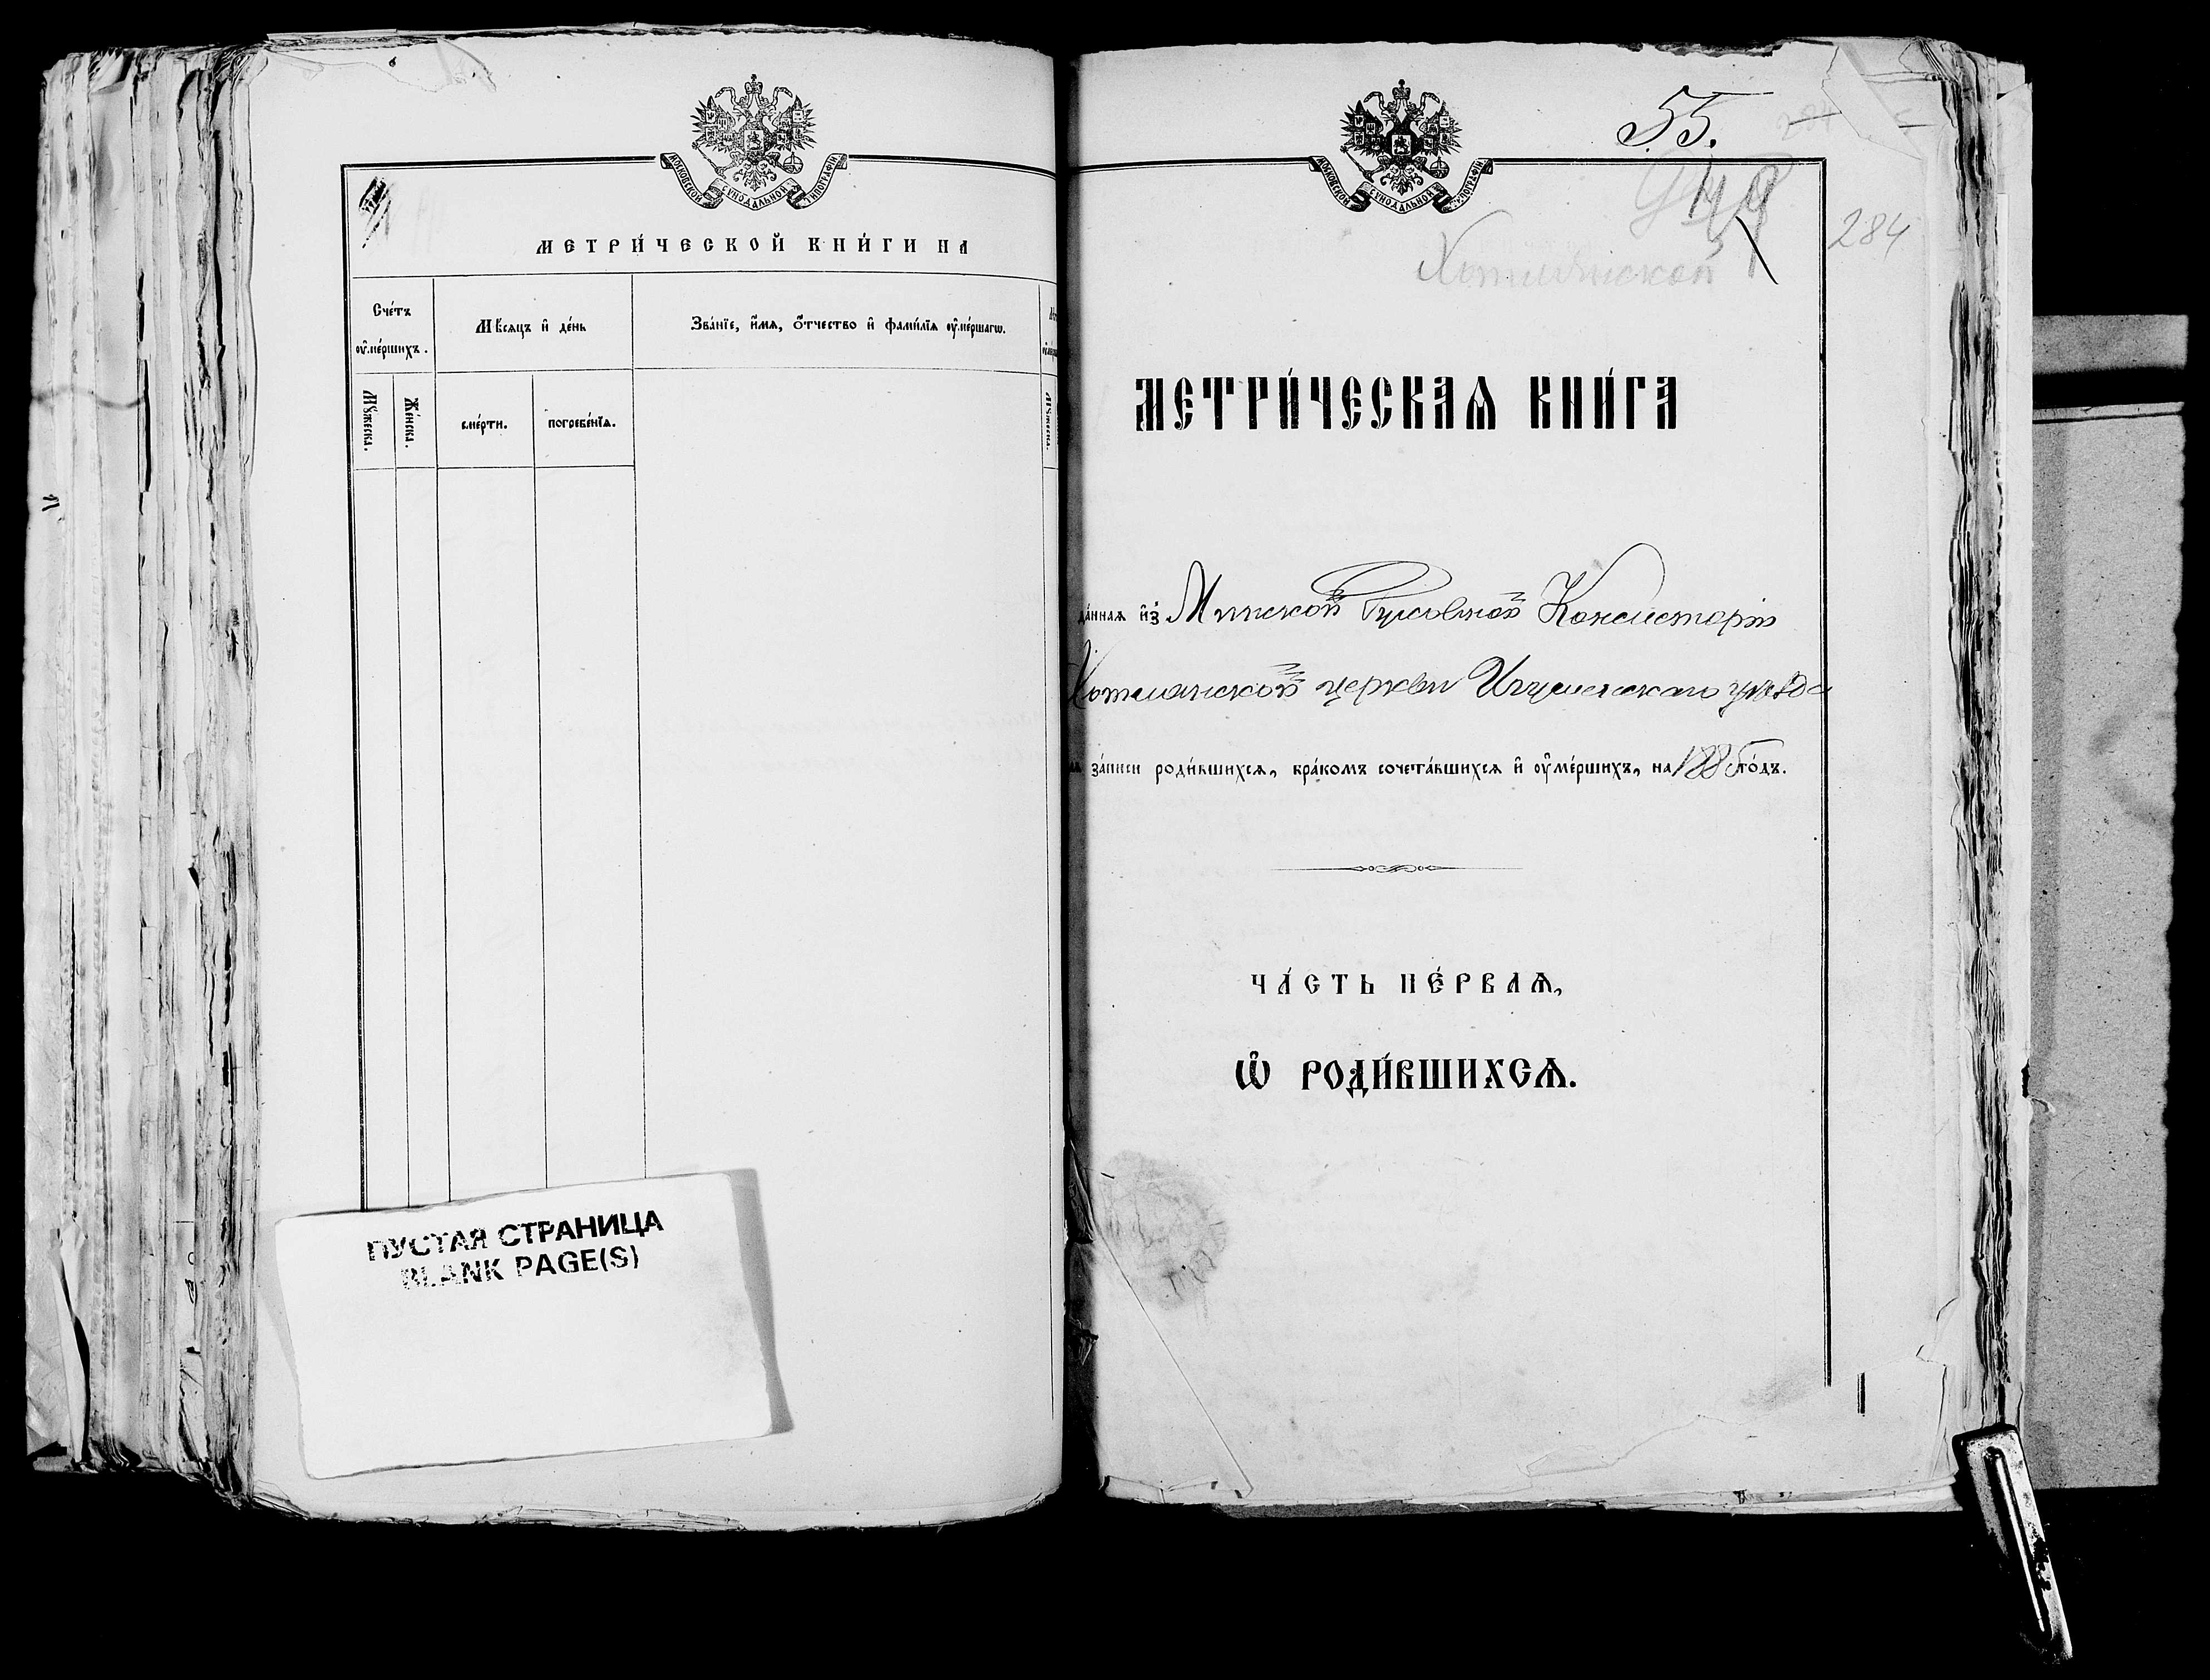 МОСКОВСКОЙ СѴНОДАЛЬНОЙ ТИПОГРАФІИ
МЕТРИ́ЧЕСКОЙ КНИ́ГИ НА
Сче́тъ оу҆ме́ршихъ.
Мѣ́сяцъ и҆ де́нь
Зва́нїе, и҆́мѧ, ѻ҆́тчество и҆ фами́лїѧ оу҆ме́ршагѡ.
Мꙋ́жеска.
Же́нска.
сме́рти.
погребе́нїѧ.
ПУСТАЯ СТРАНИЦА
BLANK PAGE(S)
55.
МОСКОВСКОЙ СѴНОДАЛЬНОЙ ТИПОГРАФІИ
284
Хотлянской
МЕТРИ́ЧЕСКАѦ КНИ́ГА
да́ннаѧ и҆з̾ Минской Духовной Консисторіи
Хотлянской церкви Игуменскаго уѣзда
за́писи роди́вшихсѧ, бра́комъ сочета́вшихсѧ и҆ оу҆ме́ршихъ, на 1885 го́дъ.
ЧА́СТЬ ПЕ́РВАѦ,
Ѽ РОДИ́ВШИХСѦ.